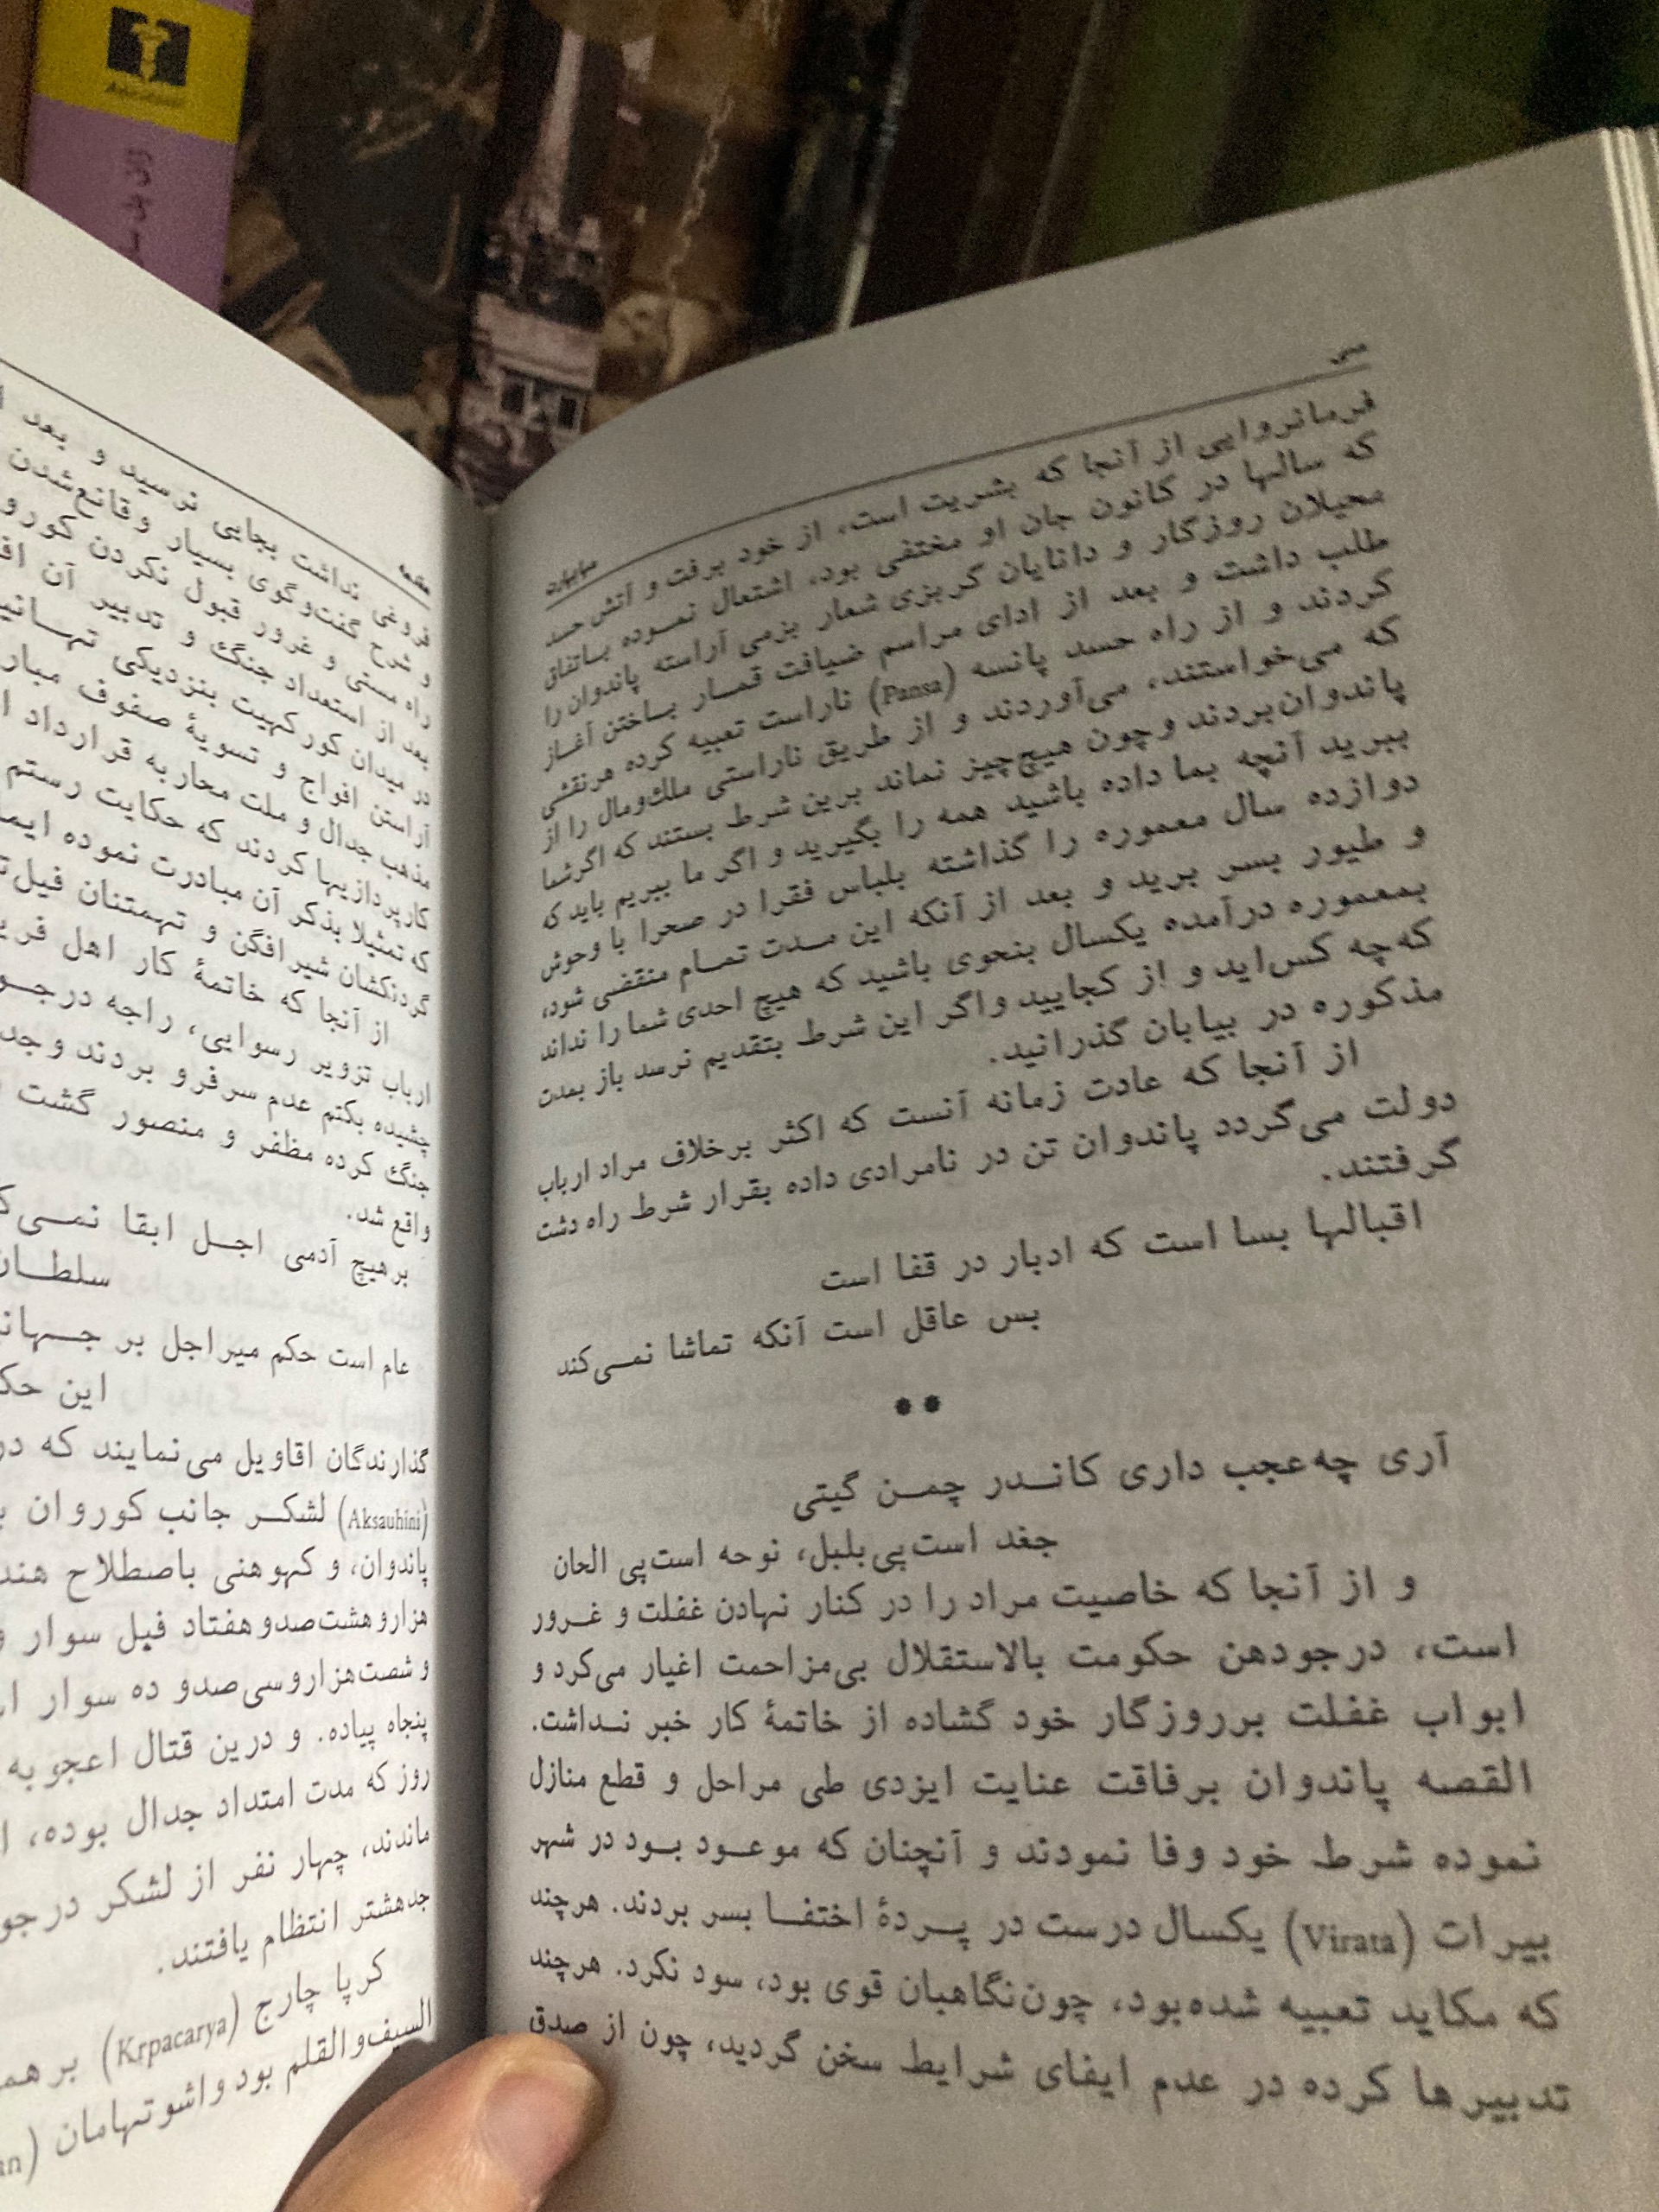 سی
مهابهارت
فرمانروایی از آنجا که بشریت است، از خود برفت و آتش حسد
که سالها در کانون جان او مختفی بود، اشتعال نموده باتفاق
محیلان روزگار و دانایان گربزی شعار بزمی آراسته پاندوان را
طلب داشت و بعد از ادای مراسم ضیافت قمار باختن آغاز
کردند و از راه حسد پانسه (Pansa) ناراست تعبیه کرده هرنقشی
که می‌خواستند، می‌آوردند و از طریق ناراستی ملک‌ومال را از
پاندوان‌بردند وچون هیچ‌چیز نماند برین شرط بستند که اگرشما
ببرید آنچه بما داده باشید همه را بگیرید و اگر ما ببریم باید که
دوازده سال معموره را گذاشته بلباس فقرا در صحرا با وحوش
و طیور بسر برید و بعد از آنکه این مدت تمام منقضی شود،
بمعموره درآمده یکسال بنحوی باشید که هیچ احدی شما را نداند
که‌چه کس‌اید و از کجایید واگر این شرط بتقدیم نرسد باز بمدت
مذکوره در بیابان گذرانید.
از آنجا که عادت زمانه آنست که اکثر برخلاف مراد ارباب
دولت می‌گردد پاندوان تن در نامرادی داده بقرار شرط راه دشت
گرفتند.
اقبالها بسا است که ادبار در قفا است
بس عاقل است آنکه تماشا نمی‌کند
**
آری چه‌عجب داری کاندر چمن گیتی
جغد است‌پی‌بلبل، نوحه است‌پی الحان
و از آنجا که خاصیت مراد را در کنار نهادن غفلت و غرور
است، درجودهن حکومت بالاستقلال بی‌مزاحمت اغیار می‌کرد و
ابواب غفلت برروزگار خود گشاده از خاتمهٔ کار خبر نداشت.
القصه پاندوان برفاقت عنایت ایزدی طی مراحل و قطع منازل
نموده شرط خود وفا نمودند و آنچنان که موعود بود در شهر
بیرات (Virata) یکسال درست در پردهٔ اختفا بسر بردند. هرچند
که مکاید تعبیه شده‌بود، چون‌نگاهبان قوی بود، سود نکرد. هرچند
تدبیرها کرده در عدم ایفای شرایط سخن گردید، چون از صدق
مقدمه
فروغی نداشت بجایی نرسید و بعد
و شرح گفت‌وگوی بسیار وقانع‌شدن
راه مستی و غرور قبول نکردن کورو
بعد از استعداد جنگ و تدبیر آن
در میدان کورکهیت بنزدیکی
آراستن افواج و تسویهٔ صفوف
مذهب جدال و ملت محاربه قرارداد
کارپردازیها کردند که حکایت رستم
که تمثیلا بذکر آن مبادرت نموده
گردنکشان شیرافگن و تهمتنان
از آنجا که خاتمهٔ کار اهل
ارباب تزویر رسوایی، راجه
چشیده بکتم عدم سرفرو بردند و
جنگ کرده مظفر و منصور گشت
واقع شد.
برهیچ آدمی اجل ابقا
عام است حکم میراجل بر
این
گذارندگان اقاویل می‌نمایند که
(Aksauhini) لشکر جانب کوروان
پاندوان، و کهوهنی باصطلاح
هزاروهشت‌صدوهفتاد فیل سوار
و شصت‌هزاروسی‌صدو ده سوار
پنجاه پیاده. و درین قتال اعجوبه
روز که مدت امتداد جدال بوده،
ماندند، چهار نفر از لشکر
جدهشتر انتظام یافتند.
کرپا چارج (Krpacarya)
السیف‌والقلم بود واشوتهامان